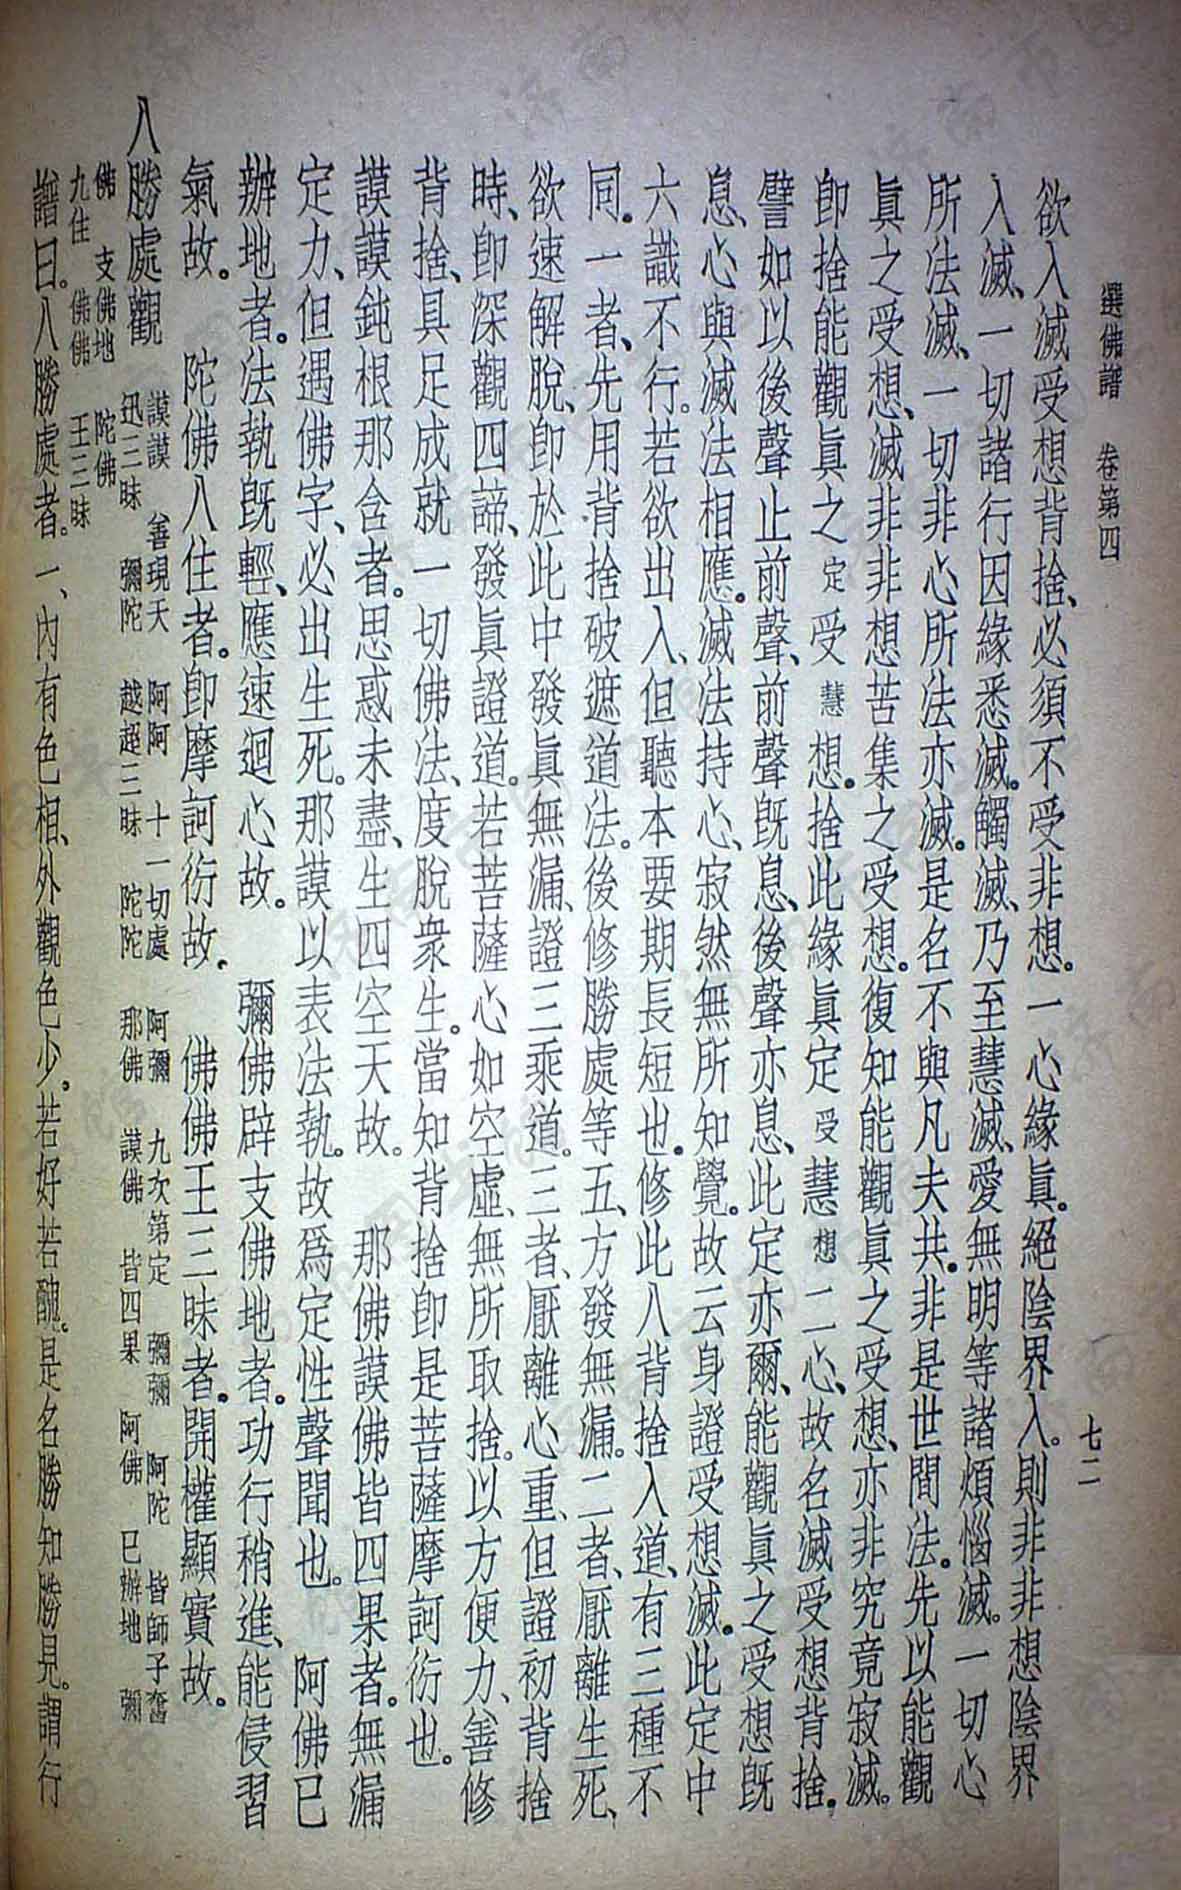 選佛譜 卷第四 七二
欲入滅受想背捨、必須不受非想。一心緣眞。絕陰界入。則非非想陰界
入滅、一切諸行因緣悉滅。觸滅、乃至慧滅、愛無明等諸煩惱滅。一切心
所法滅、一切非心所法亦滅。是名不與凡夫共。非是世間法。先以能觀
眞之受想、滅非非想苦集之受想。復知能觀眞之受想、亦非究竟寂滅。
卽捨能觀眞之定受慧想。捨此緣眞定受慧想二心、故名滅受想背捨。
譬如以後聲止前聲、前聲旣息、後聲亦息、此定亦爾、能觀眞之受想旣
息、心與滅法相應。滅法持心、寂然無所知覺。故云身證受想滅。此定中
六識不行。若欲出入、但聽本要期長短也。修此八背捨入道、有三種不
同。一者、先用背捨破遮道法。後修勝處等五、方發無漏。二者、厭離生死、
欲速解脫、卽於此中發眞無漏、證三乘道。三者、厭離心重、但證初背捨
時、卽深觀四諦、發眞證道。若菩薩心如空虛、無所取捨。以方便力、善修
背捨、具足成就一切佛法、度脫衆生。當知背捨卽是菩薩摩訶衍也。
謨謨鈍根那含者。思惑未盡、生四空天故。 那佛謨佛皆四果者。無漏
定力、但遇佛字、必出生死。那謨以表法執。故爲定性聲聞也。 阿佛已
辦地者。法執旣輕、應速迴心故。 彌佛辟支佛地者。功行稍進、能侵習
氣故。 陀佛八住者。卽摩訶衍故。 佛佛王三昧者。開權顯實故。
八勝處觀
謨謨 善現天 阿阿 十一切處 阿彌 九次第定 彌彌 阿陀 皆師子奮
迅三昧 彌陀 越超三昧 陀陀 那佛 謨佛 皆四果 阿佛 已辦地 彌
佛 支佛地 陀佛
九住 佛佛 王三昧
譜曰。八勝處者。一、內有色相、外觀色少。若好若醜。是名勝知勝見。謂行